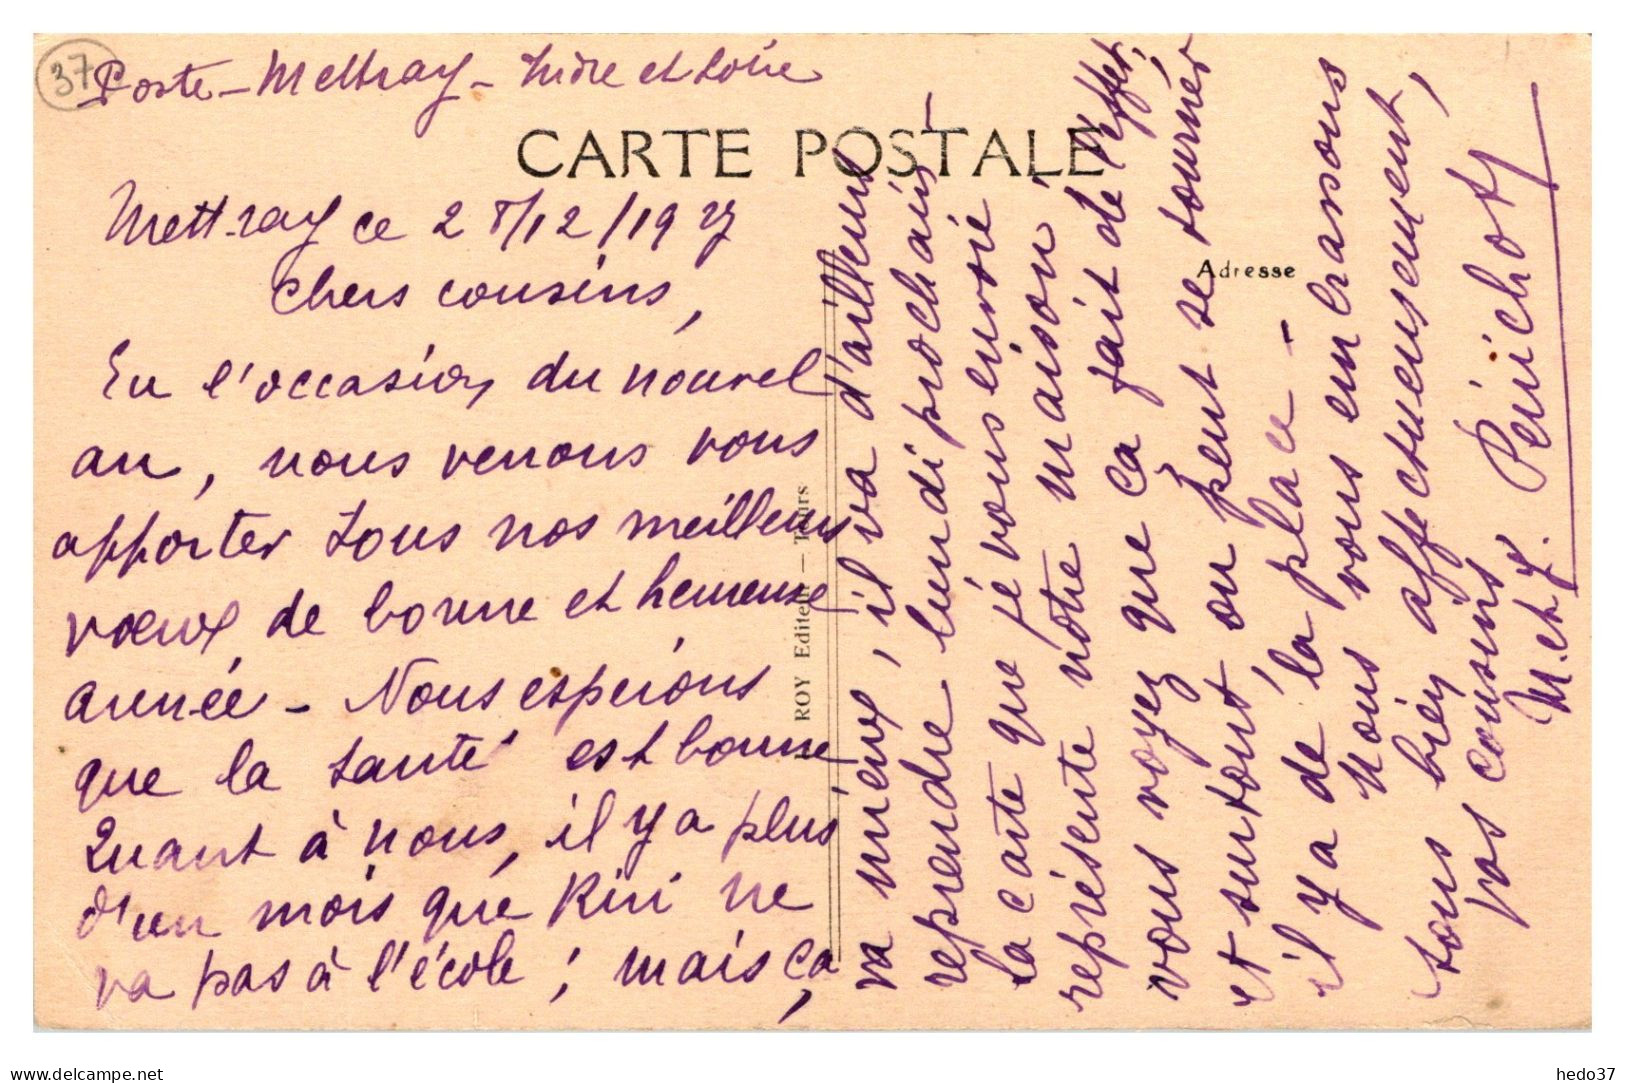 37
Poste - Mettray - Indre et Loire
CARTE POSTALE
Mettray ce 28/12/1927
chers cousins,
En l'occasion du nouvel
an, nous venons vous
apporter tous nos meilleurs
vœux de bonne et heureuse
année - Nous espérons
que la santé est bonne
Quant à nous, il y a plus
d'un mois que Riri ne
va pas à l'école ; mais ça
ROY Editeur - Tours
va mieux, il va d'ailleurs
reprendre lundi prochain -
la carte que je vous envoie
représente notre maison
vous voyez que ça fait de l'effet,
et surtout, on peut se tourner
il y a de la place -
Nous vous embrassons
tous bien affectueusement,
vos cousins
M. et Y. Périchot
Adresse
delcampe.net
hedo37